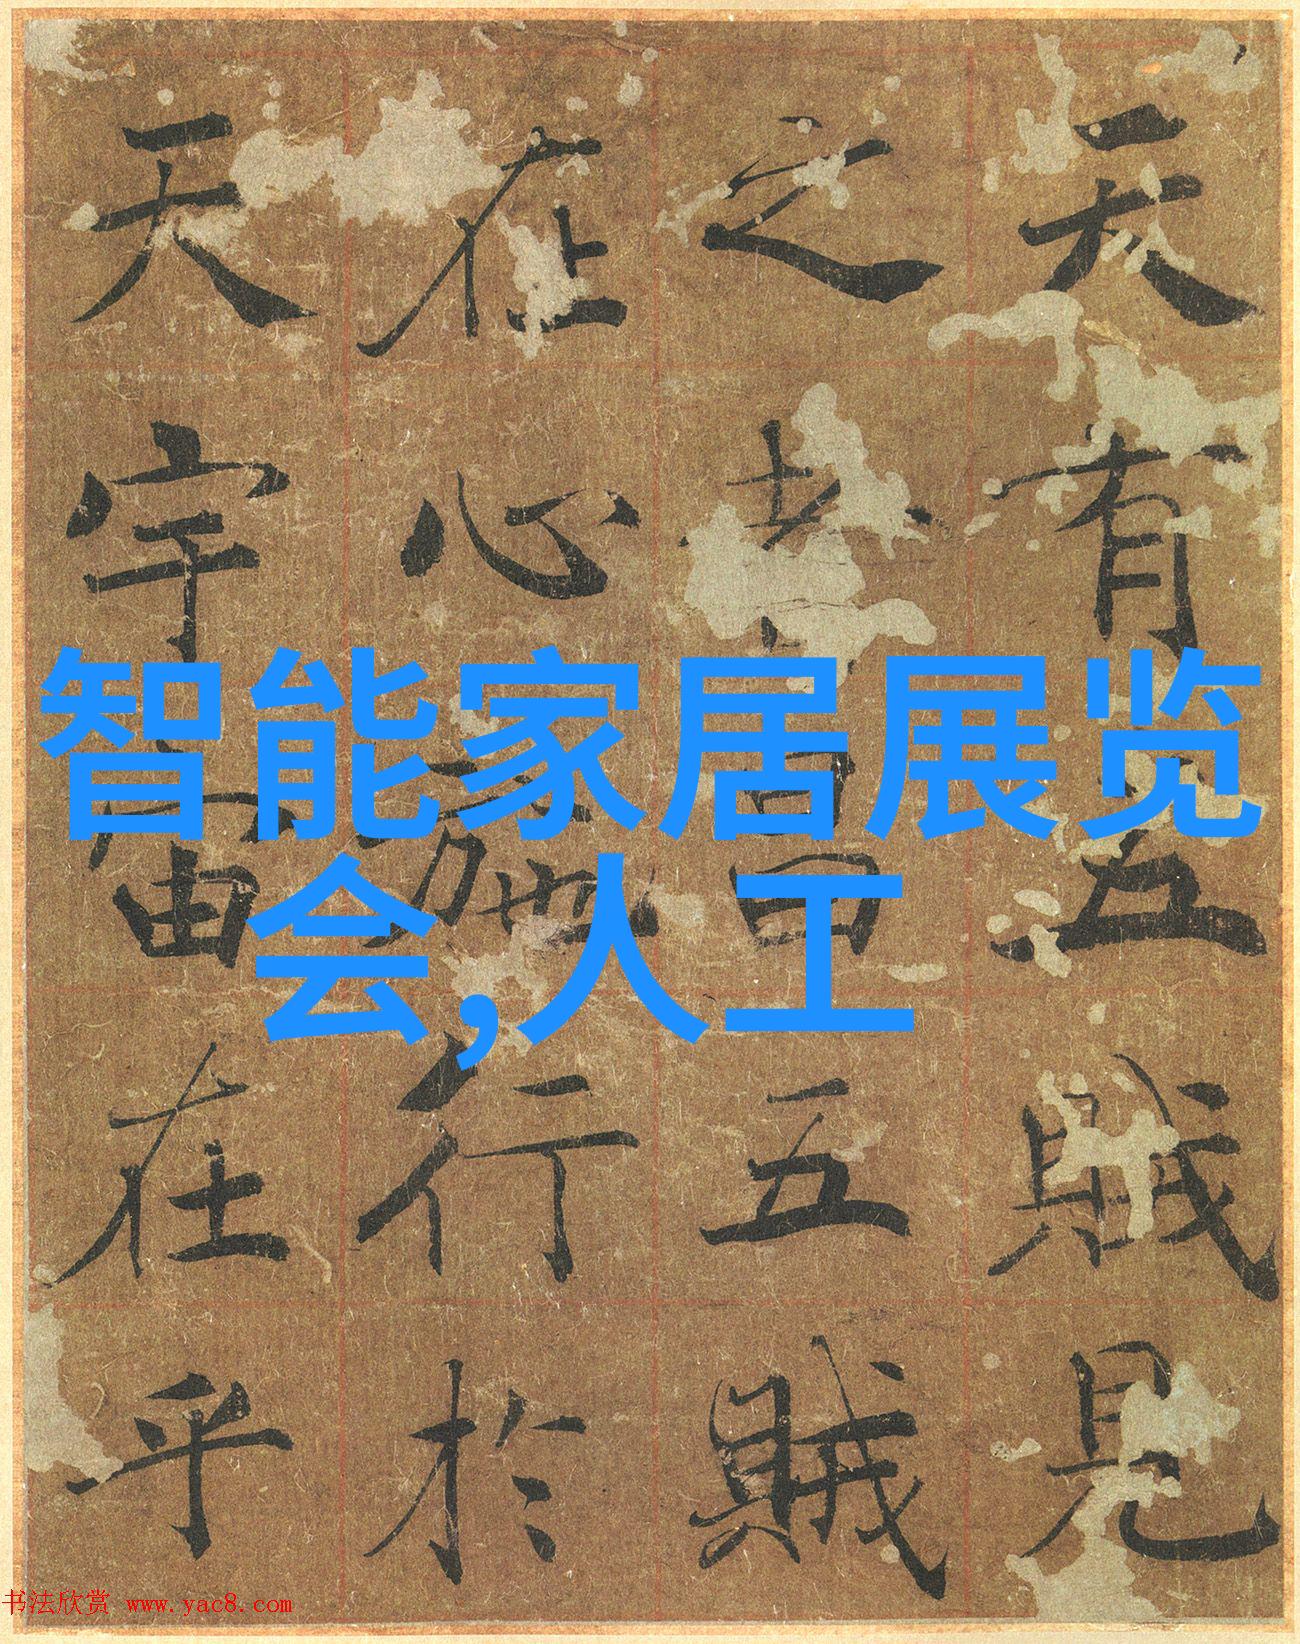 天有五賊見
之者昌五賊
在心施行於
天宇宙在乎
智能家居展览
会,人工
书法欣赏 www.yac8.com